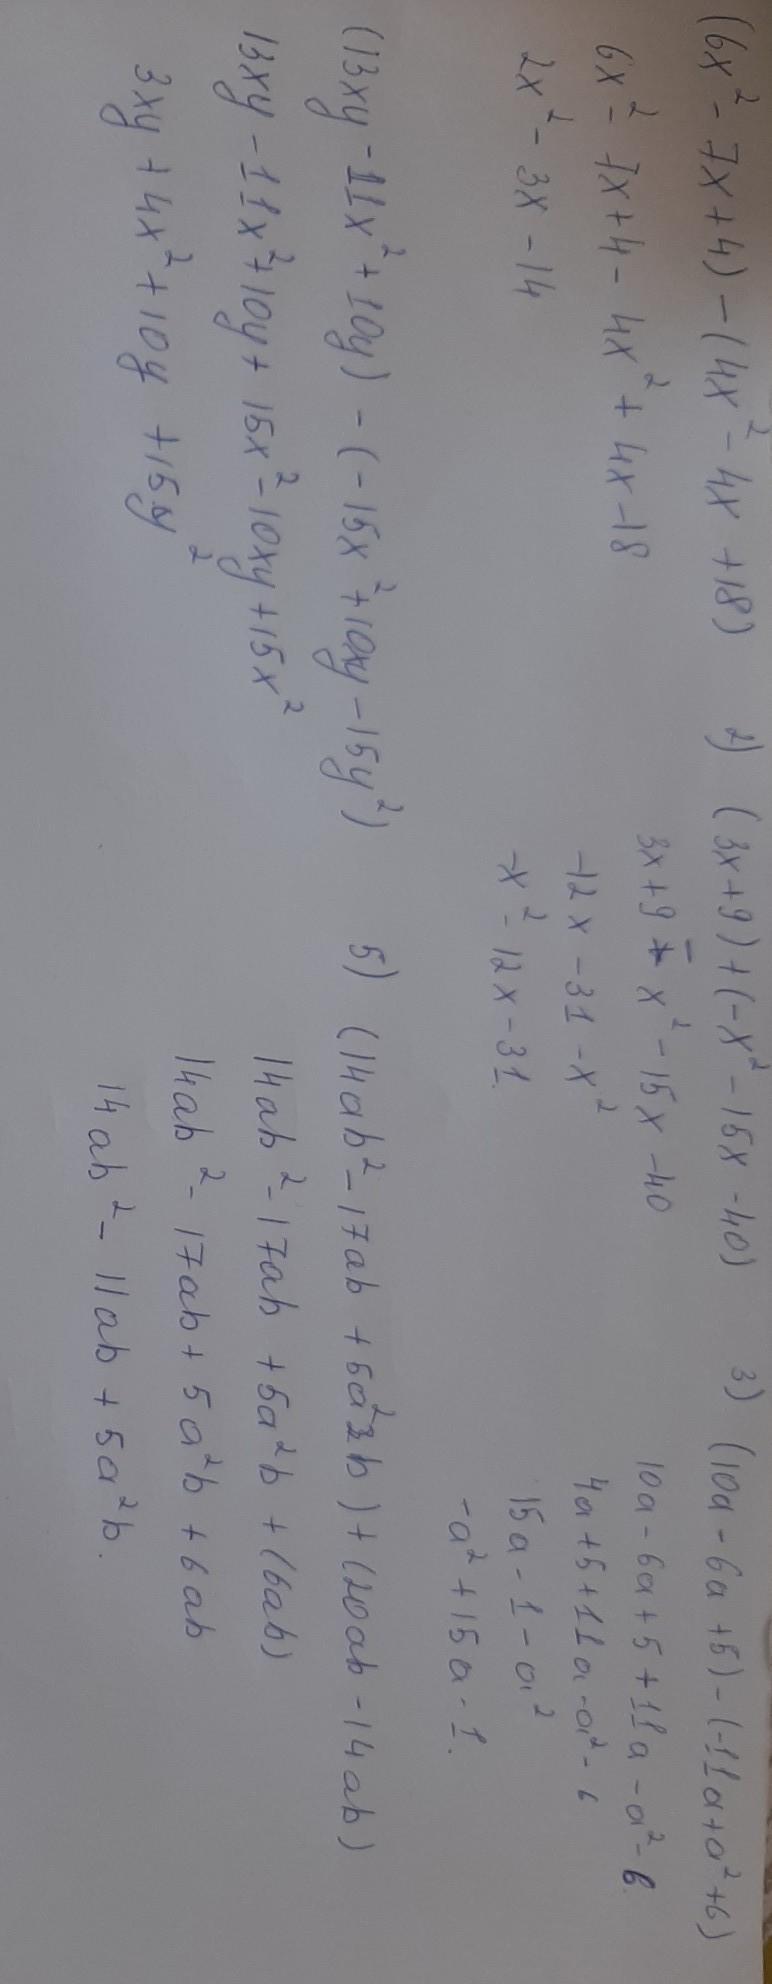 (6x² - 7x + 4) - (4x² - 4x + 18)
6x² - 7x + 4 - 4x² + 4x - 18
2x² - 3x - 14
2) (3x + 9) + (-x² - 15x - 40)
3x + 9 - x² - 15x - 40
-12x - 31 - x²
-x² - 12x - 31.
3) (10a - 6a + 5) - (-11a + a² + 6)
10a - 6a + 5 + 11a - a² - 6.
4a + 5 + 11a - a² - 6
15a - 1 - a²
-a² + 15a - 1.
(13xy - 11x² + 10y) - (-15x² + 10xy - 15y²)
13xy - 11x² + 10y + 15x² - 10xy + 15x²
3xy + 4x² + 10y + 15y²
5) (14ab² - 17ab + 5a²b) + (20ab - 14ab)
14ab² - 17ab + 5a²b + (6ab)
14ab² - 17ab + 5a²b + 6ab
14ab² - 11ab + 5a²b.